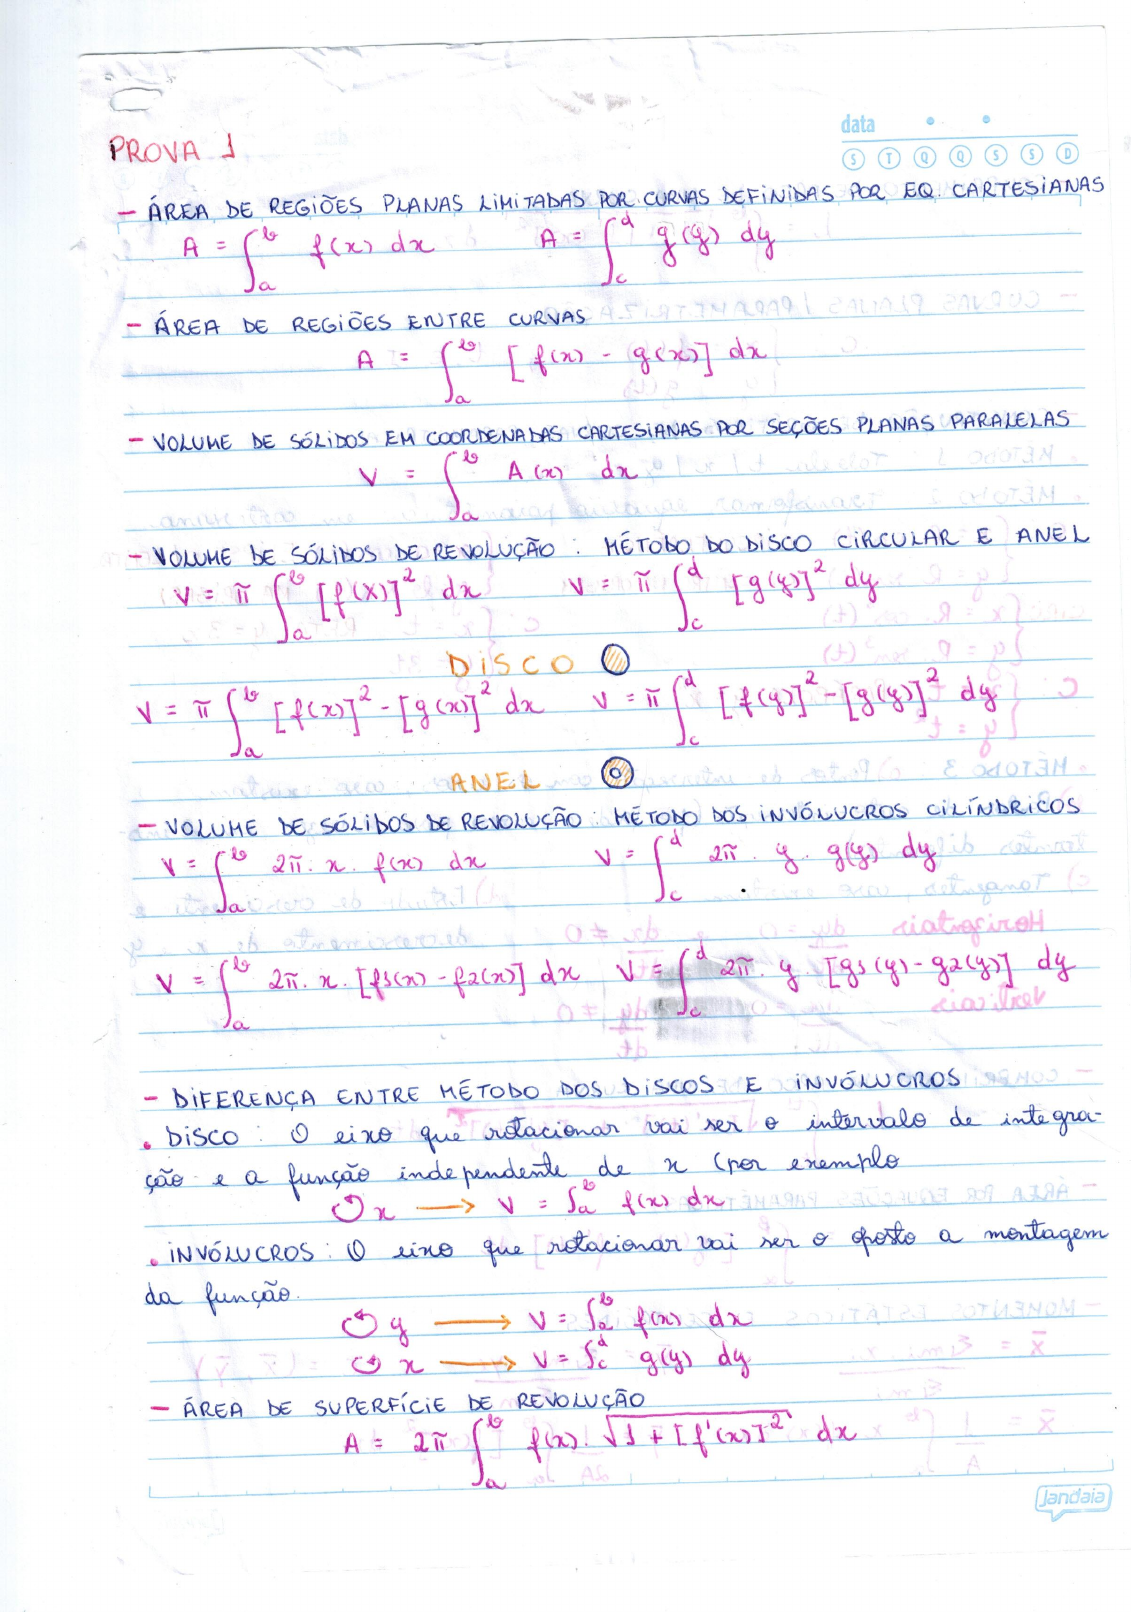 data
S T Q Q S S D
PROVA 1
- ÁREA DE REGIÕES PLANAS LIMITADAS POR CURVAS DEFINIDAS POR EQ. CARTESIANAS
A = ∫_a^b f(x) dx A = ∫_c^d g(y) dy
- ÁREA DE REGIÕES ENTRE CURVAS
A = ∫_a^b [f(x) - g(x)] dx
- VOLUME DE SÓLIDOS EM COORDENADAS CARTESIANAS POR SEÇÕES PLANAS PARALELAS
V = ∫_a^b A(x) dx
- VOLUME DE SÓLIDOS DE REVOLUÇÃO: MÉTODO DO DISCO CIRCULAR E ANEL
V = π ∫_a^b [f(x)]² dx V = π ∫_c^d [g(y)]² dy
DISCO
V = π ∫_a^b [f(x)]² - [g(x)]² dx V = π ∫_c^d [f(y)]² - [g(y)]² dy
ANEL
- VOLUME DE SÓLIDOS DE REVOLUÇÃO: MÉTODO DOS INVÓLUCROS CILÍNDRICOS
V = ∫_a^b 2π. x. f(x) dx V = ∫_c^d 2π. y. g(y) dy
V = ∫_a^b 2π. x. [f1(x) - f2(x)] dx V = ∫_c^d 2π. y. [g1(y) - g2(y)] dy
- DIFERENÇA ENTRE MÉTODO DOS DISCOS E INVÓLUCROS
. DISCO: O eixo que rotacionar vai ser o intervalo de integra-
ção e a função independente de x (por exemplo
↺ x → V = ∫_a^b f(x) dx
. INVÓLUCROS: O eixo que rotacionar vai ser o oposto a montagem
da função.
↺ y → V = ∫_a^b f(x) dx
↺ x → V = ∫_c^d g(y) dy
- ÁREA DE SUPERFÍCIE DE REVOLUÇÃO
A = 2π ∫_a^b f(x). √(1 + [f'(x)]²) dx
jandaia